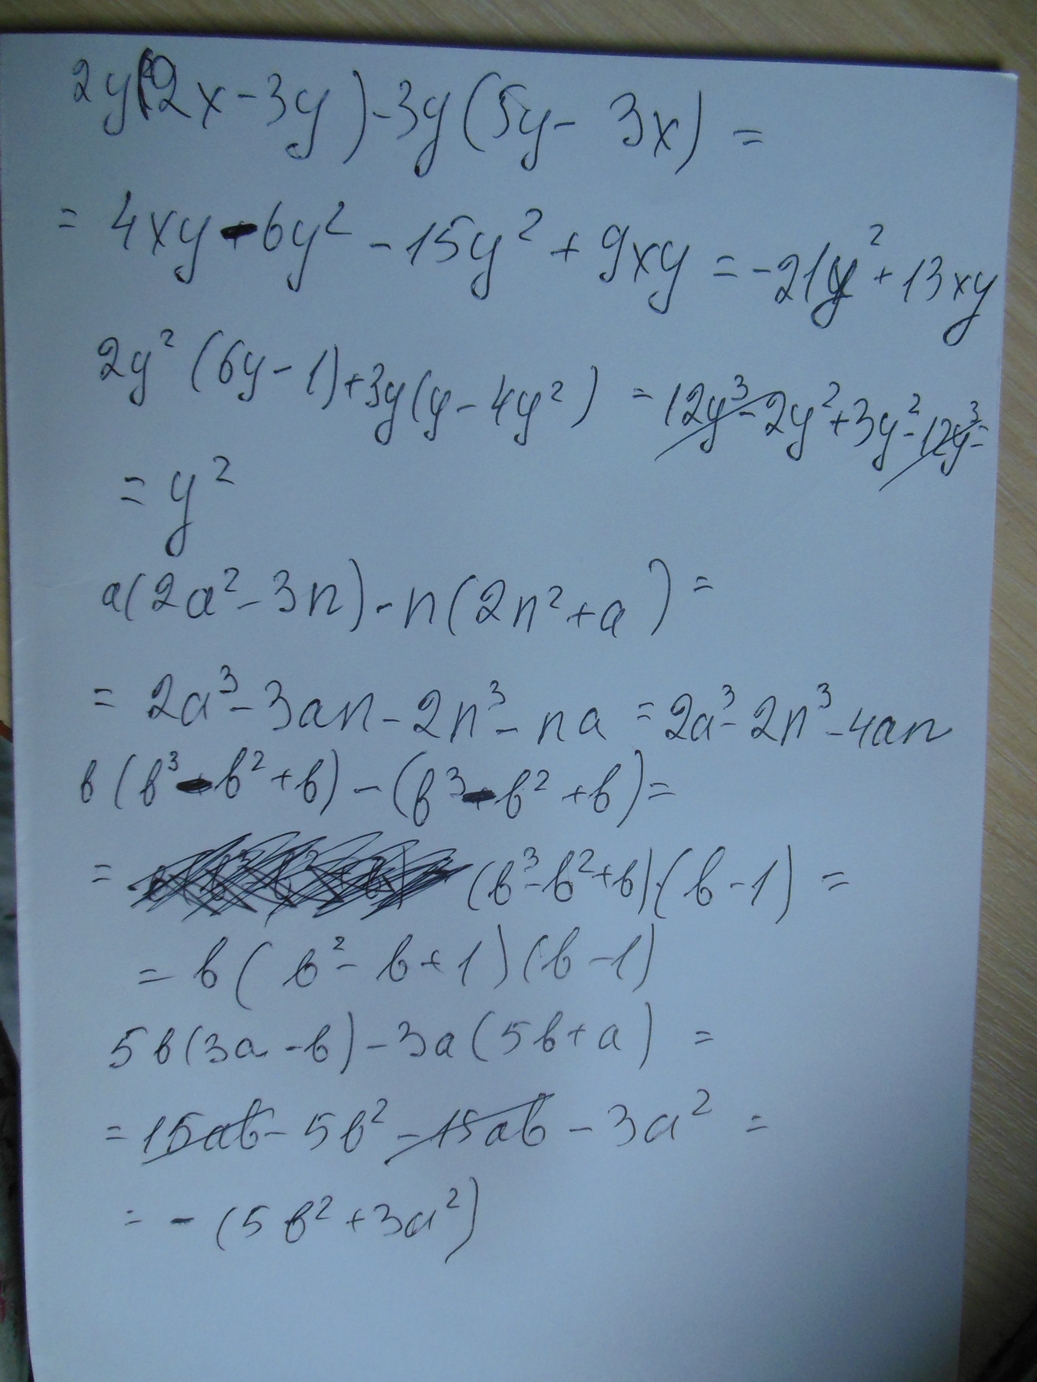 2y(2x-3y)-3y(5y-3x)=
= 4xy-6y²-15y²+9xy=-21y²+13xy
2y²(6y-1)+3y(y-4y²)=12y³-2y²+3y²-12y³=
= y²
a(2a²-3n)-n(2n²+a)=
= 2a³-3an-2n³-na=2a³-2n³-4an
в(в³-в²+в)-(в³-в²+в)=
= (в³-в²+в)·(в-1)=
= в(в²-в+1)(в-1)
5в(3a-в)-3a(5в+a)=
= 15aв-5в²-15aв-3a²=
= -(5в²+3a²)